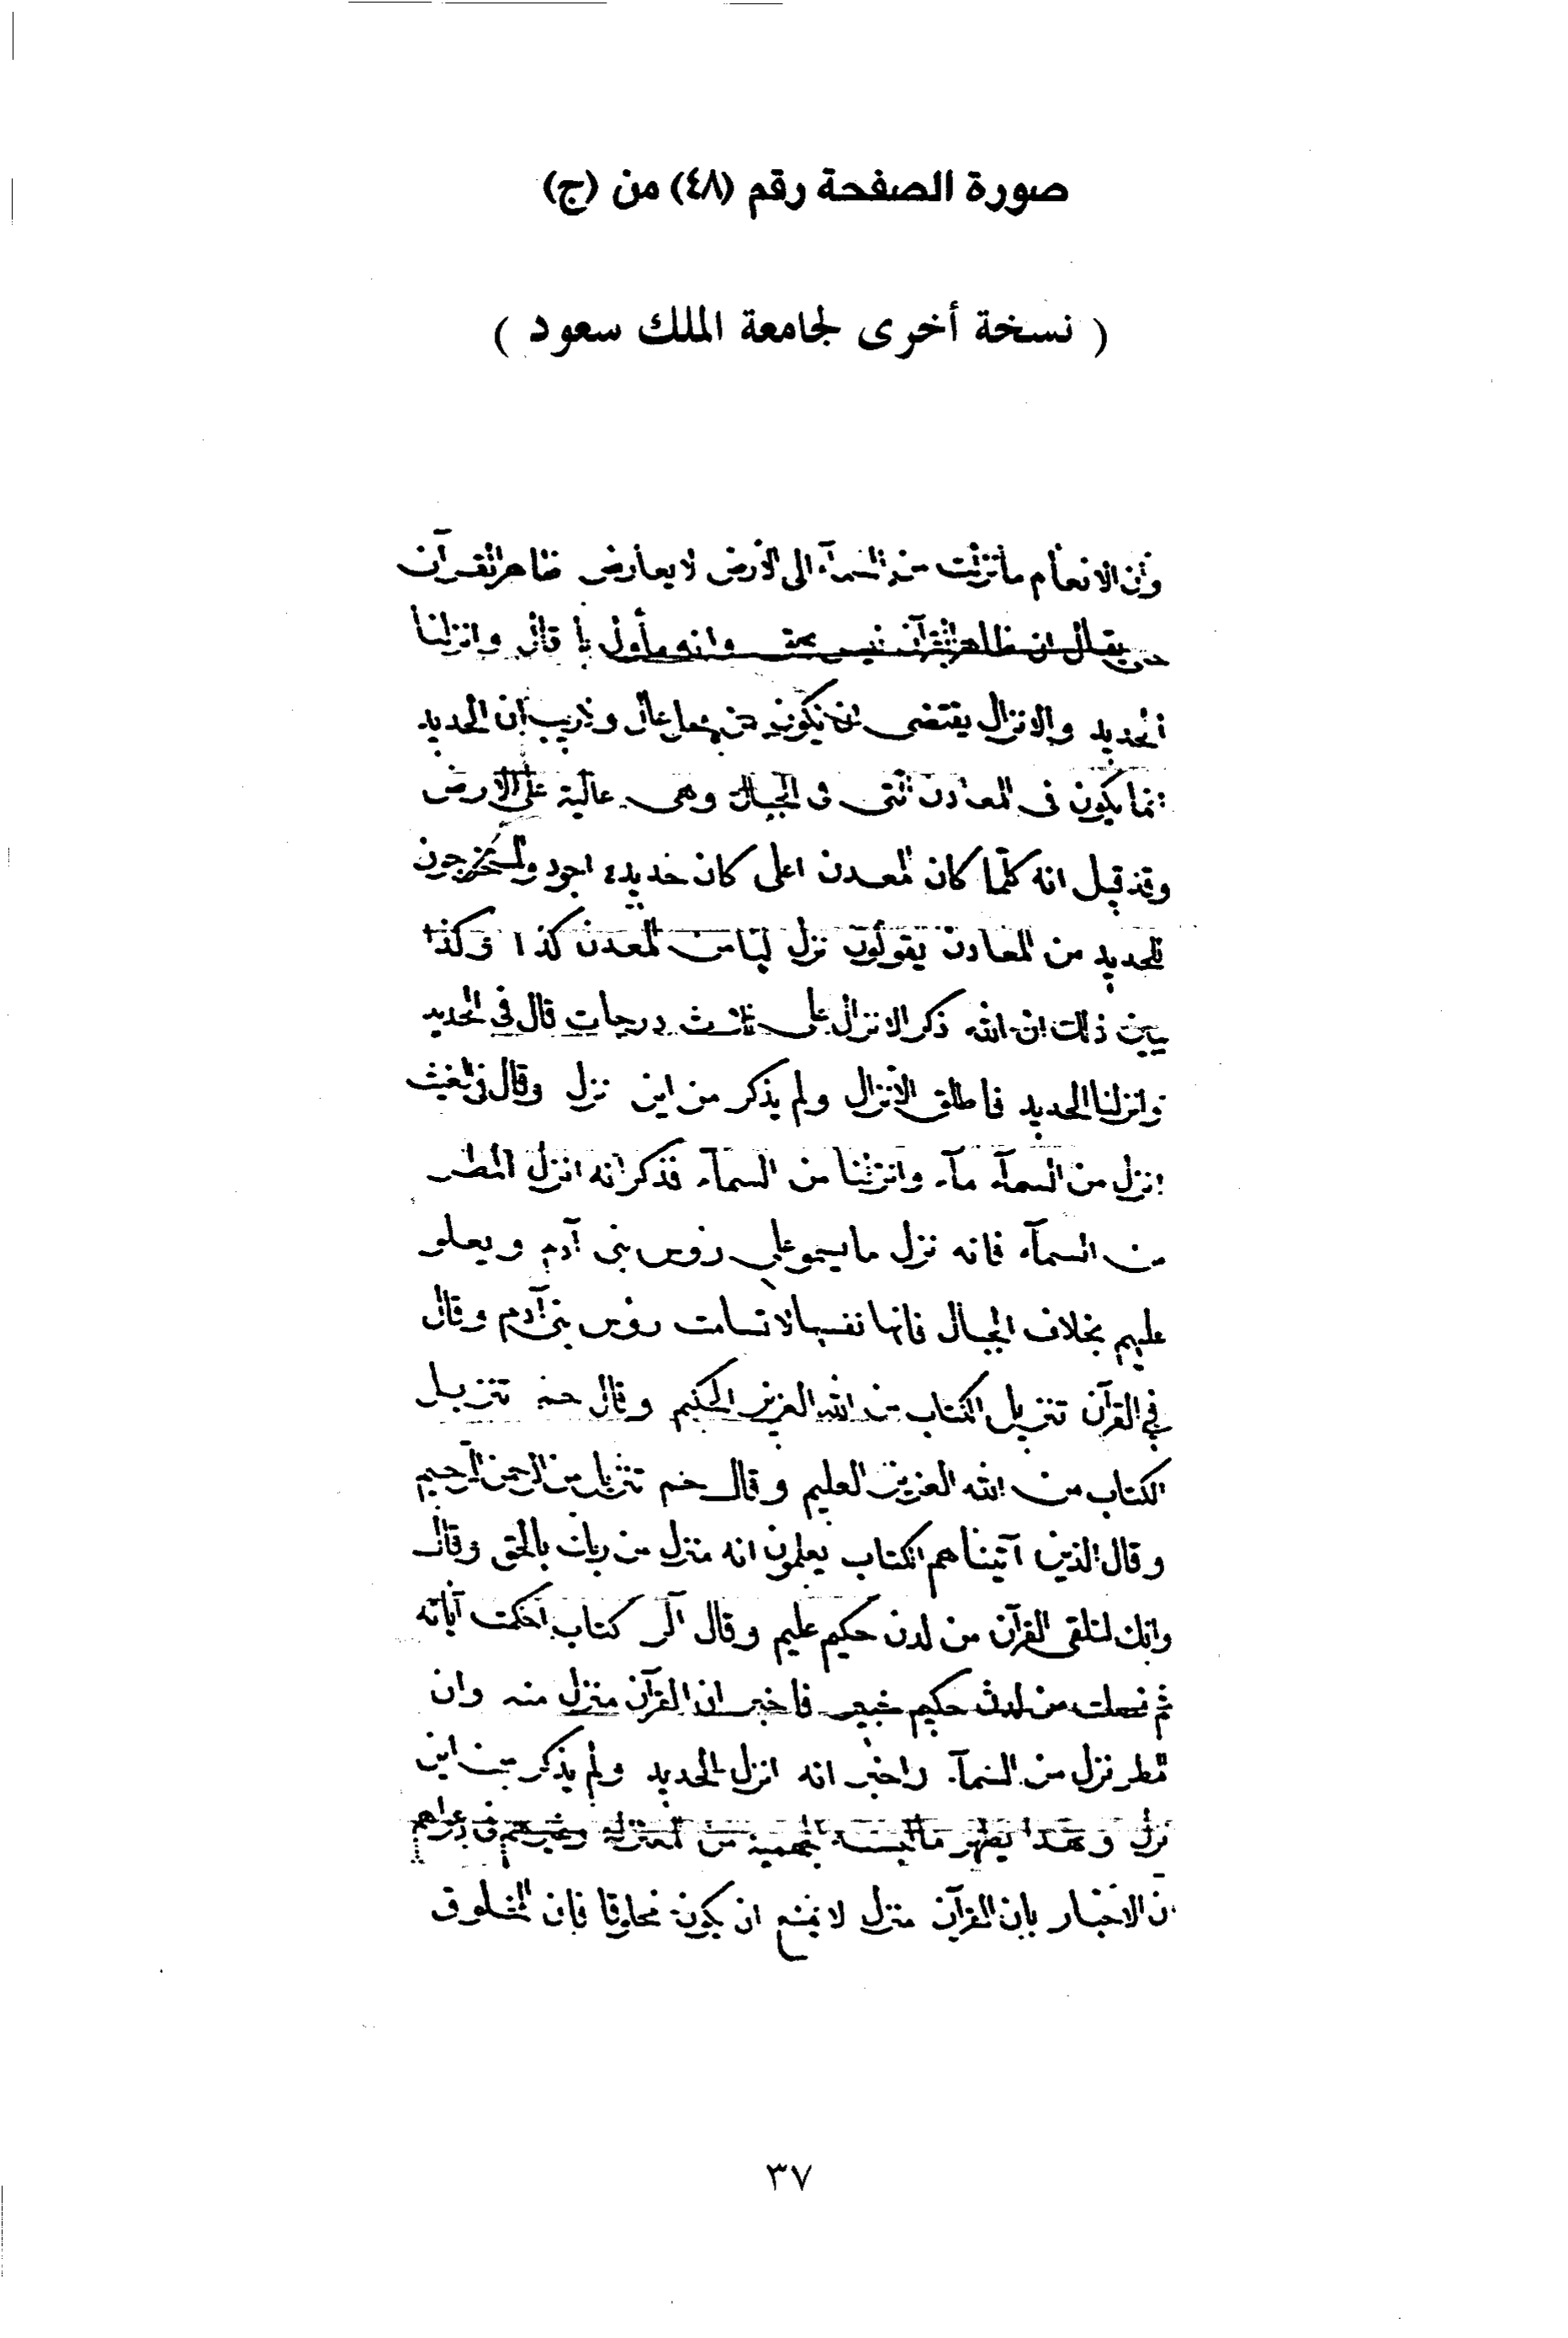 صورة الصفحة رقم (٤٨) من (ج)
( نسخة أخرى لجامعة الملك سعود )
وان الانعام ما نزلت من السمآء الى الارض لا يعارض ظاهر القرآن
حتى يقال ان ظاهر القرآن ليس بحق وانه مأول يا قال وانزلنا
الحديد والانزال يقتضى ان يكون من محل عال ولا ريب ان الحديد
انما يكون فى المعادن التى فى الجبال وهى عالية على الارض
وقد قيل انه كلما كان المعدن اعلى كان حديده اجود والمستخرجون
للحديد من المعادن يقولون نزل لنا من المعدن كذا وكذا
يبين ذلك ان الله ذكر الانزال على ثلاث درجات قال فى الحديد
وانزلنا الحديد فاطلق الانزال ولم يذكر من اين نزل وقال فى الغيث
انزل من السمآء مآء وانزلنا من السمآء فذكر انه انزل المطر
من السمآء فانه نزل ما يسمو على رؤس بنى آدم ويعلو
عليهم بخلاف الجبال فانها نفسها لا تسامت رؤس بنى آدم وقال
فى القرآن تنزيل الكتاب من الله العزيز الحكيم وقال حم تنزيل
الكتاب من الله العزيز العليم وقال حم تنزيل من الرحمن الرحيم
وقال الذين آتيناهم الكتاب يعلمون انه منزل من ربك بالحق وقال
وانك لتلقى القرآن من لدن حكيم عليم وقال الر كتاب احكمت آياته
ثم فصلت من لدن حكيم خبير فاخبر ان القرآن منزل منه وان
المطر نزل من السمآء واخبر انه انزل الحديد ولم يذكر من اين
نزل وبهذا يظهر ما الجهمية من المعتزلة وغيرهم فى دعواهم
ان الاخبار بان القرآن منزل لا يمنع ان يكون مخلوقا فان المخلوق
٣٧